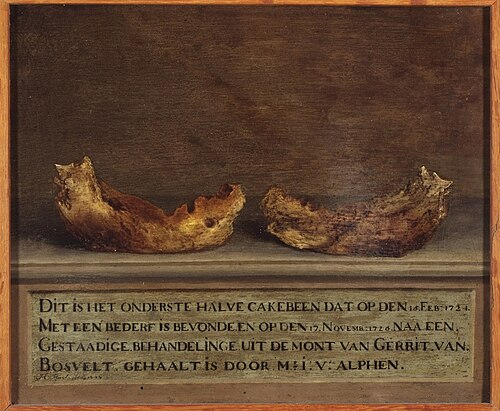 DIT IS HET ONDERSTE HALVE CAKEBEEN DAT OP DEN 16. FEB: 1724.
MET EEN BEDERF IS BEVONDEEN OP DEN 17. NOVEMB: 1726 NA EEN,
GESTAADIGE BEHANDELINGE UIT DE MONT VAN GERRIT VAN.
BOSVELT. GEHAALT IS DOOR M: I: V: ALPHEN.